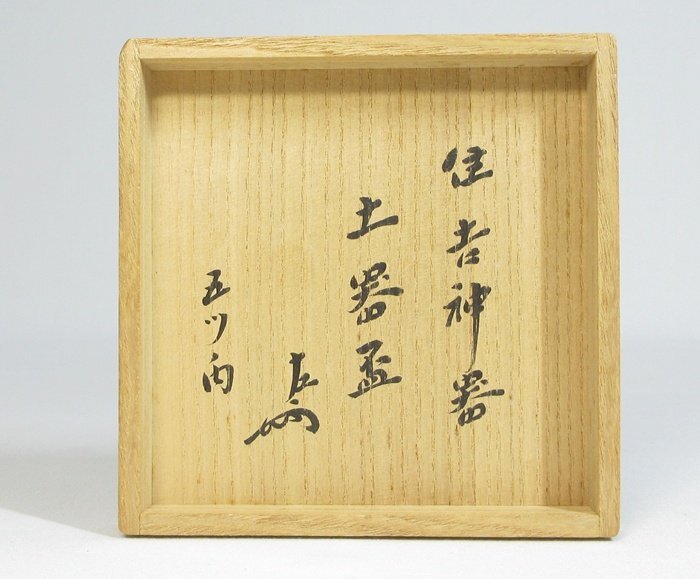 住吉神器
土器盃
五ツ内